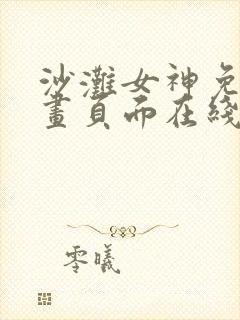 沙灘女神免
畫頁面在綫
零曦